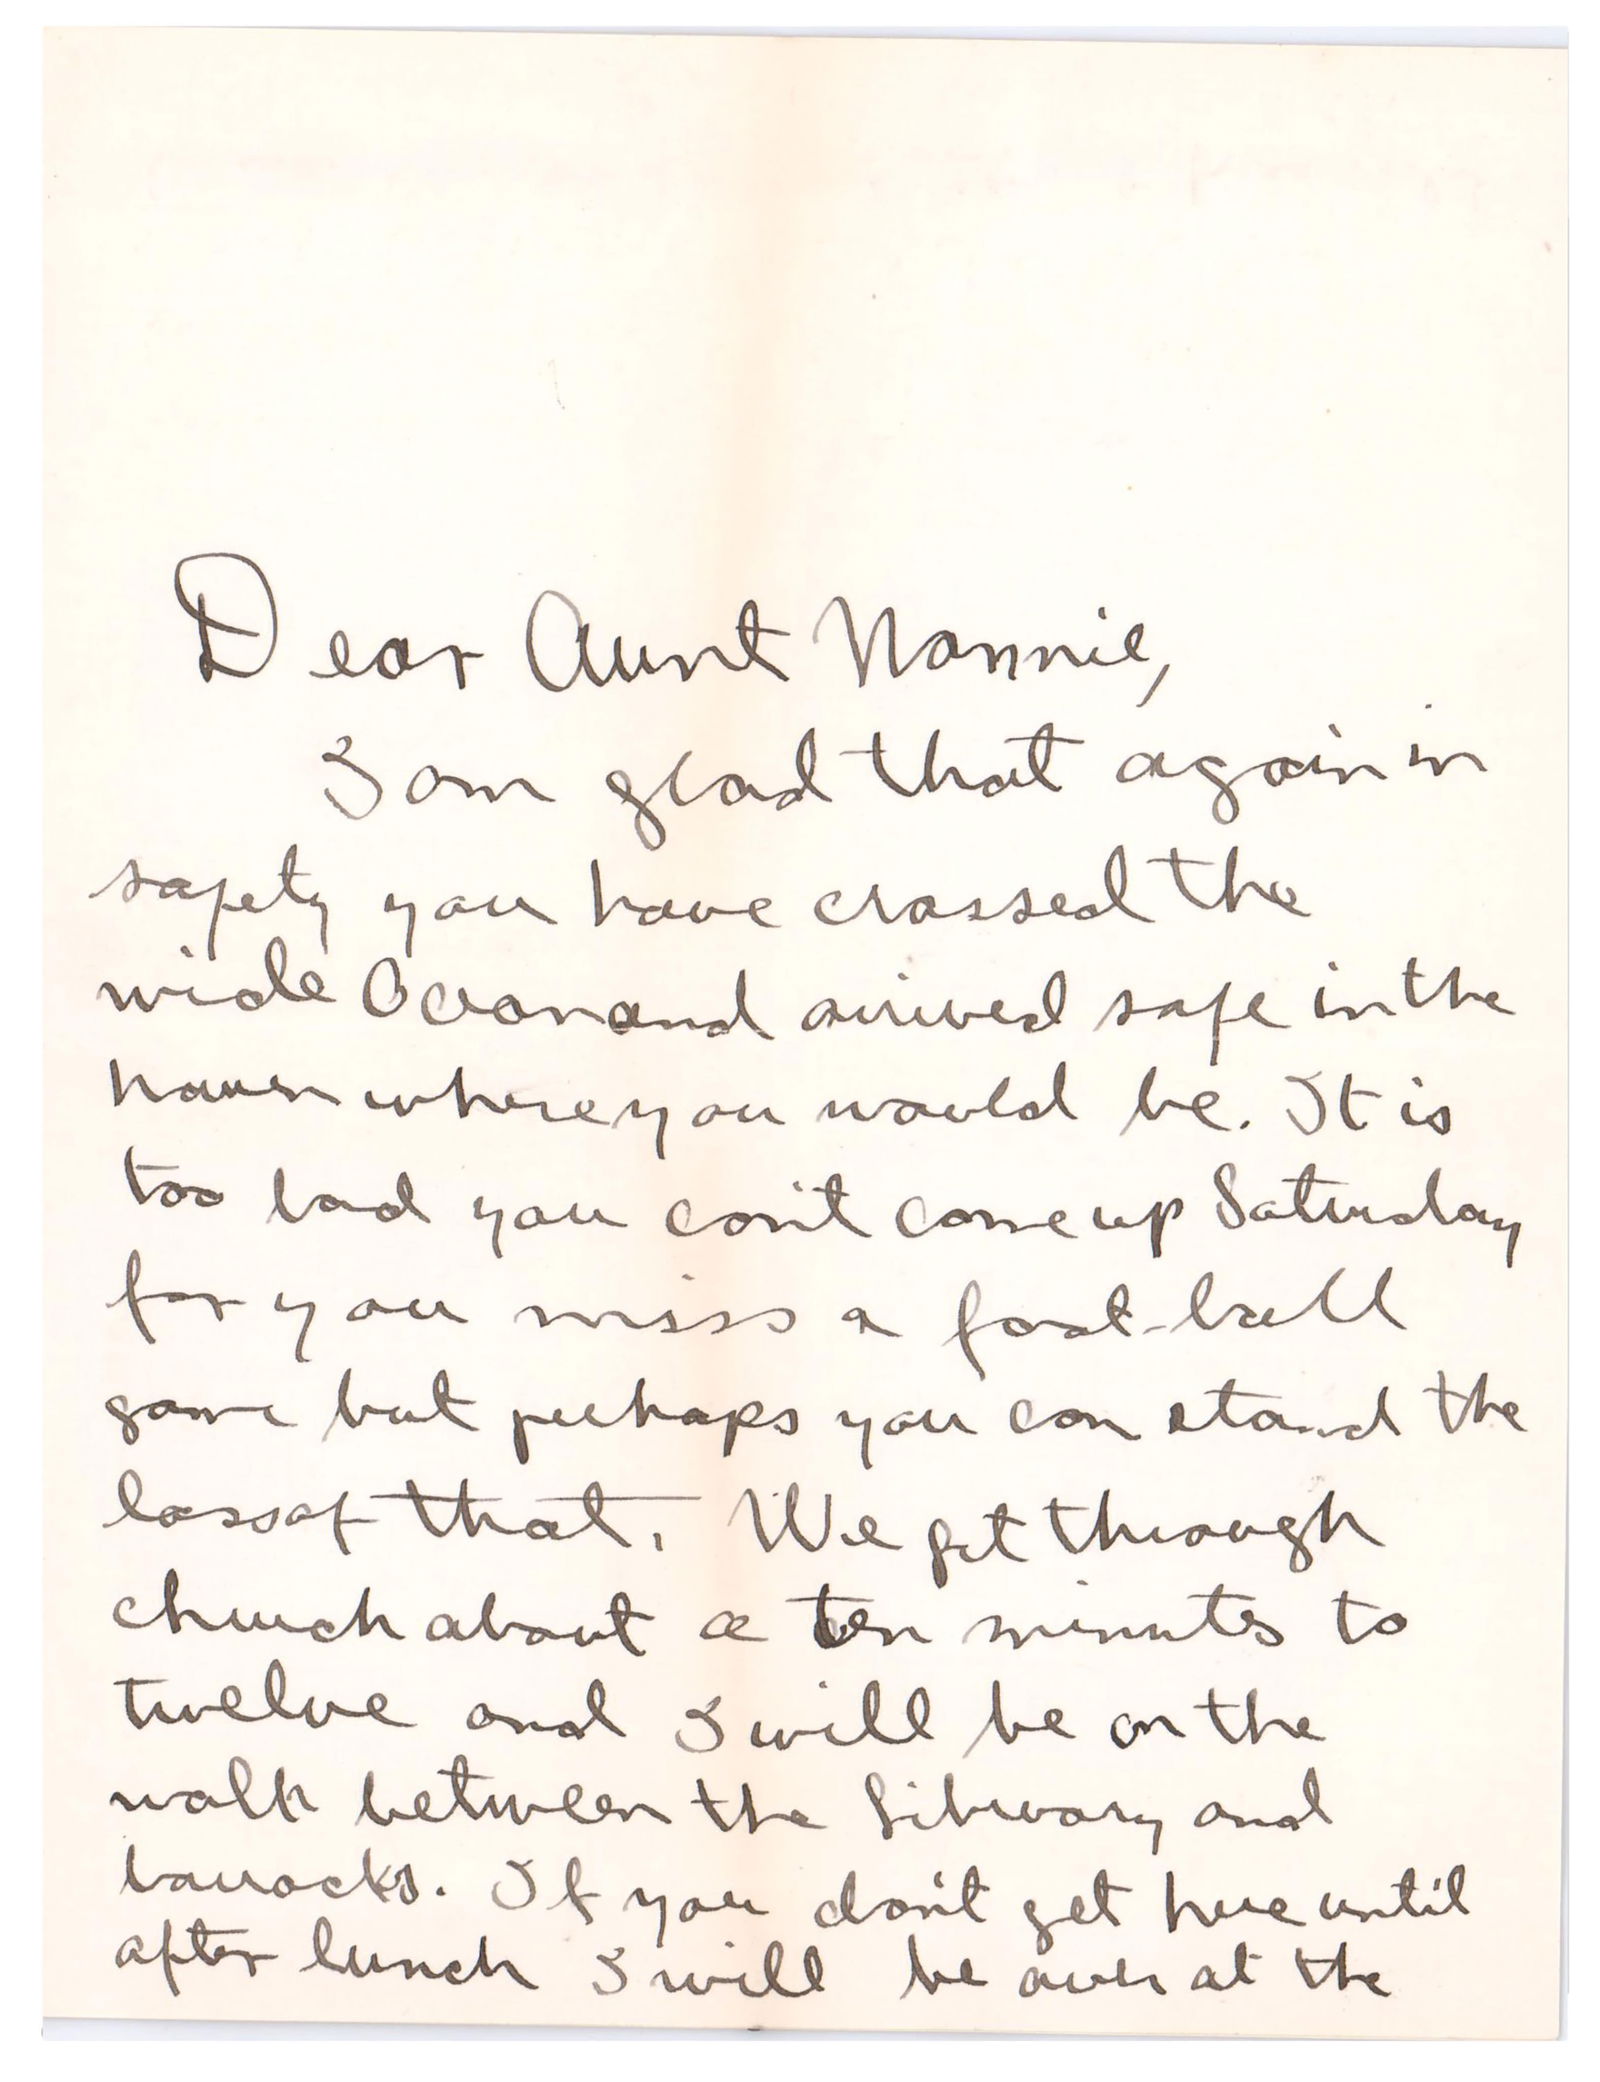 Dear Aunt Nannie,
I am glad that again in
safety you have crossed the
wide Ocean and arrived safe in the
haven where you would be. It is
too bad you can't come up Saturday
for you miss a foot-ball
game but perhaps you can stand the
loss of that. We get through
church about a ten minutes to
twelve and I will be on the
walk between the Library and
barracks. If you don't get here until
after lunch I will be over at the